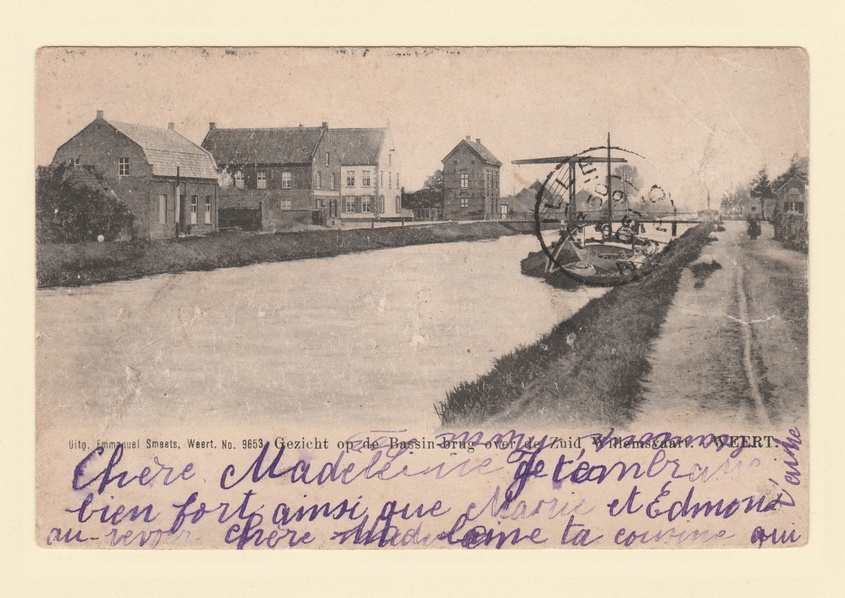 Uitg. Emmanuel Smeets, Weert. No. 9653. Gezicht op de Bassin-brug over de Zuid Willemsvaart. WEERT.
Chère Madeleine Je t'embrasse
bien fort ainsi que Marie et Edmond
au-revoir chère Madeleine ta cousine qui
t'aime